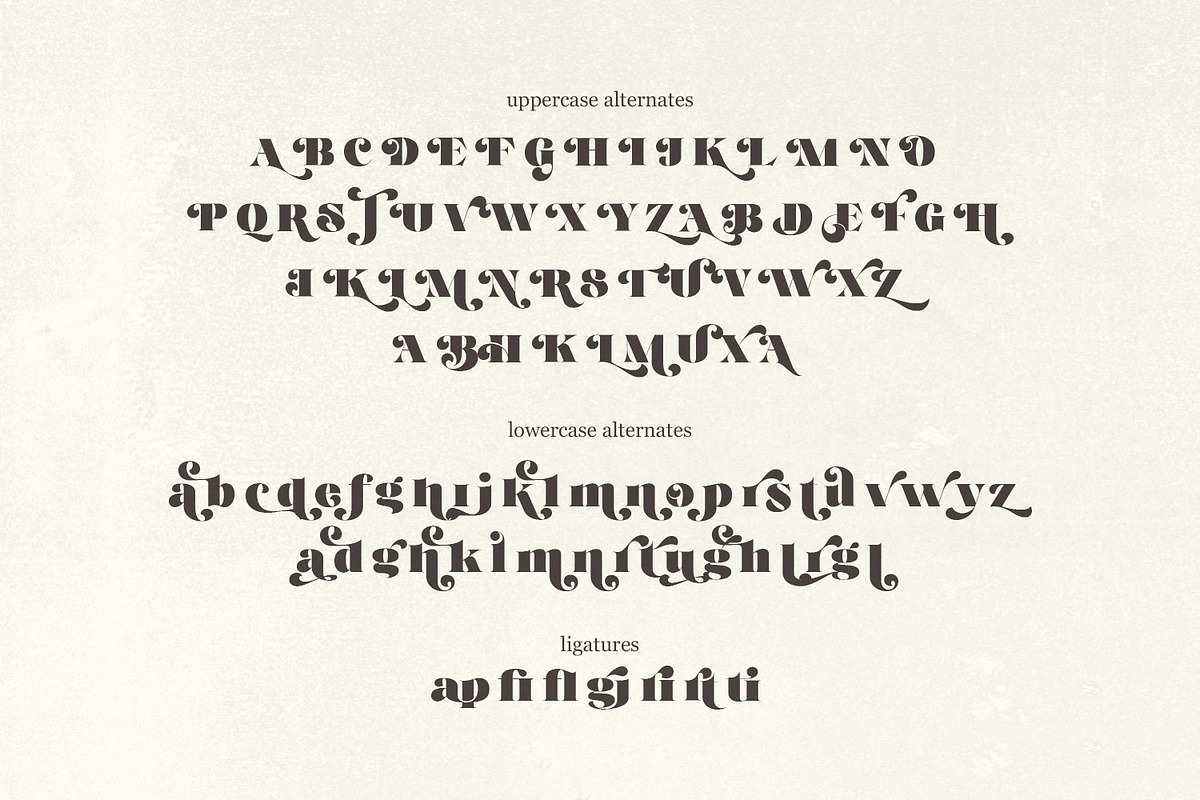 uppercase alternates
A B C D E F G H I J K L M N O
P Q R S J U V W X Y Z A B D E F G H
J K L M N R S T U V W X Z
A B H K L M U X A
lowercase alternates
a b c d e f g h i j k l m n o p r s t d v w y z
a d g h k l m n r t u g h l r g l
ligatures
ap fi fl gj ri rt ti